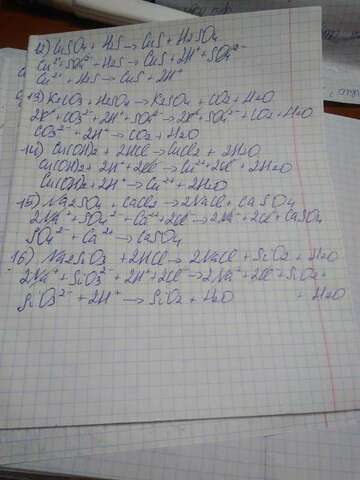 12) CuSO4 + H2S → CuS + H2SO4
Cu²⁺ + SO4²⁻ + H2S → CuS + 2H⁺ + SO4²⁻
Cu²⁺ + H2S → CuS + 2H⁺
13) K2CO3 + H2SO4 → K2SO4 + CO2 + H2O
2K⁺ + CO3²⁻ + 2H⁺ + SO4²⁻ → 2K⁺ + SO4²⁻ + CO2 + H2O
CO3²⁻ + 2H⁺ → CO2 + H2O
14) Cu(OH)2 + 2HCl → CuCl2 + 2H2O
Cu(OH)2 + 2H⁺ + 2Cl⁻ → Cu²⁺ + 2Cl⁻ + 2H2O
Cu(OH)2 + 2H⁺ → Cu²⁺ + 2H2O
15) Na2SO4 + CaCl2 → 2NaCl + CaSO4
2Na⁺ + SO4²⁻ + Ca²⁺ + 2Cl⁻ → 2Na⁺ + 2Cl⁻ + CaSO4
SO4²⁻ + Ca²⁺ → CaSO4
16) Na2SiO3 + 2HCl → 2NaCl + SiO2 + H2O
2Na⁺ + SiO3²⁻ + 2H⁺ + 2Cl⁻ → 2Na⁺ + 2Cl⁻ + SiO2 +
+ H2O
SiO3²⁻ + 2H⁺ → SiO2 + H2O